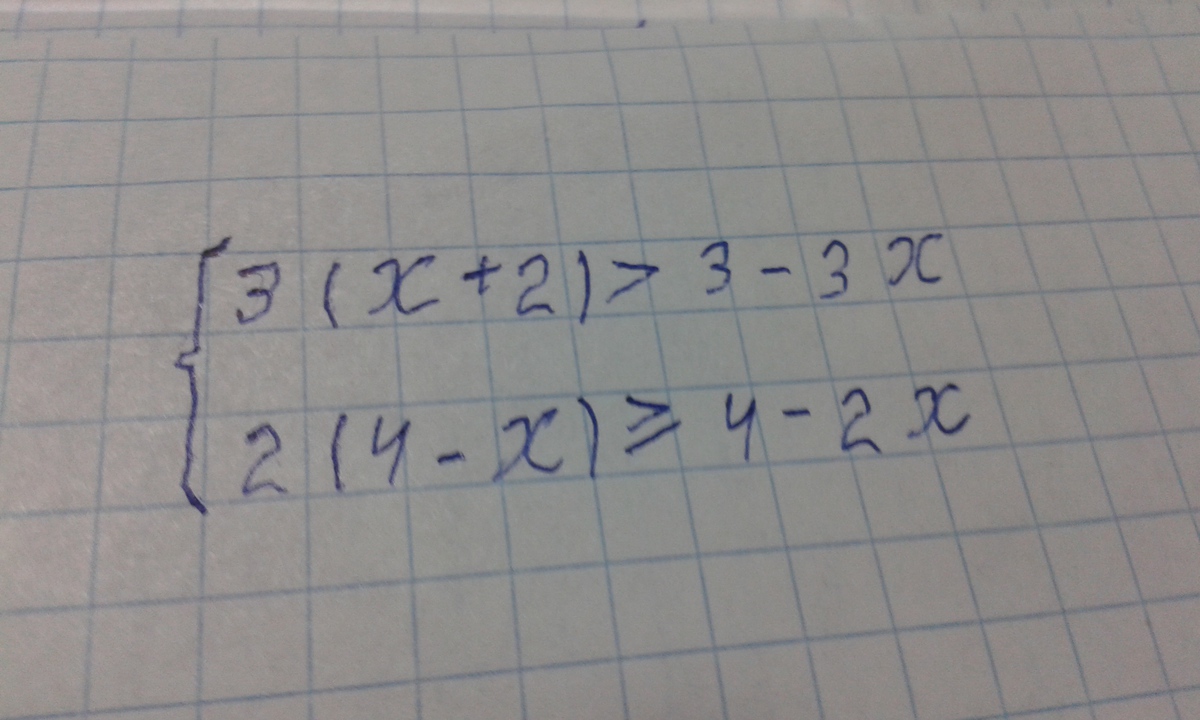 3(x+2)>3-3x
2(4-x)≥4-2x